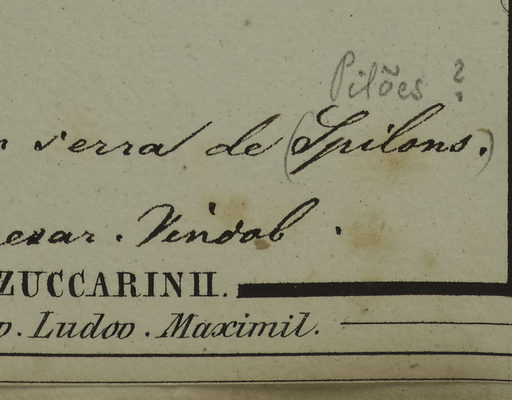 Pilões ?
serra de (Spilons.)
Vindob.
ZUCCARINII.
Ludov. Maximil.